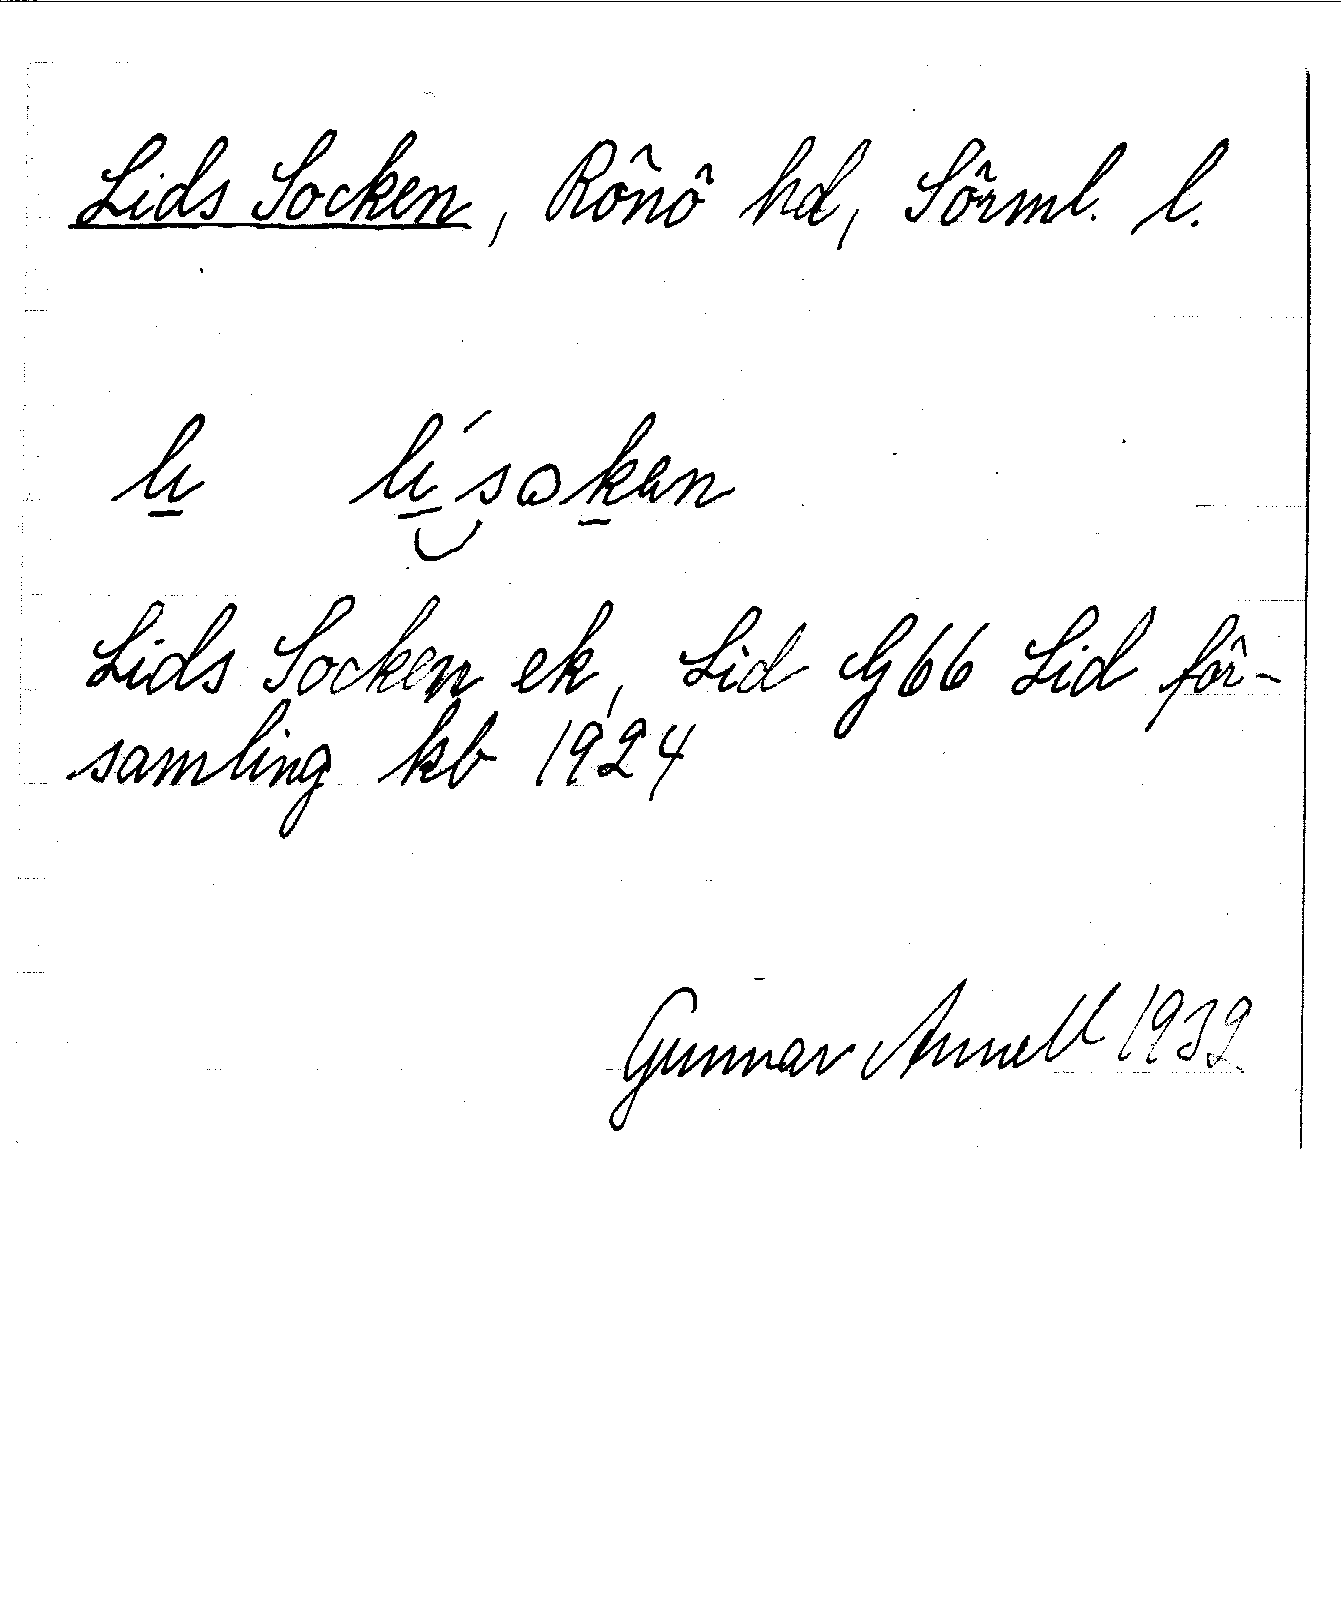 Lids Socken, Rönö hd, Sörml. l.
lı̱ lı̱́soḵen
Lids Socken ek, Lid G66 Lid för-
samling kb 1924
Gunnar Annell 1932